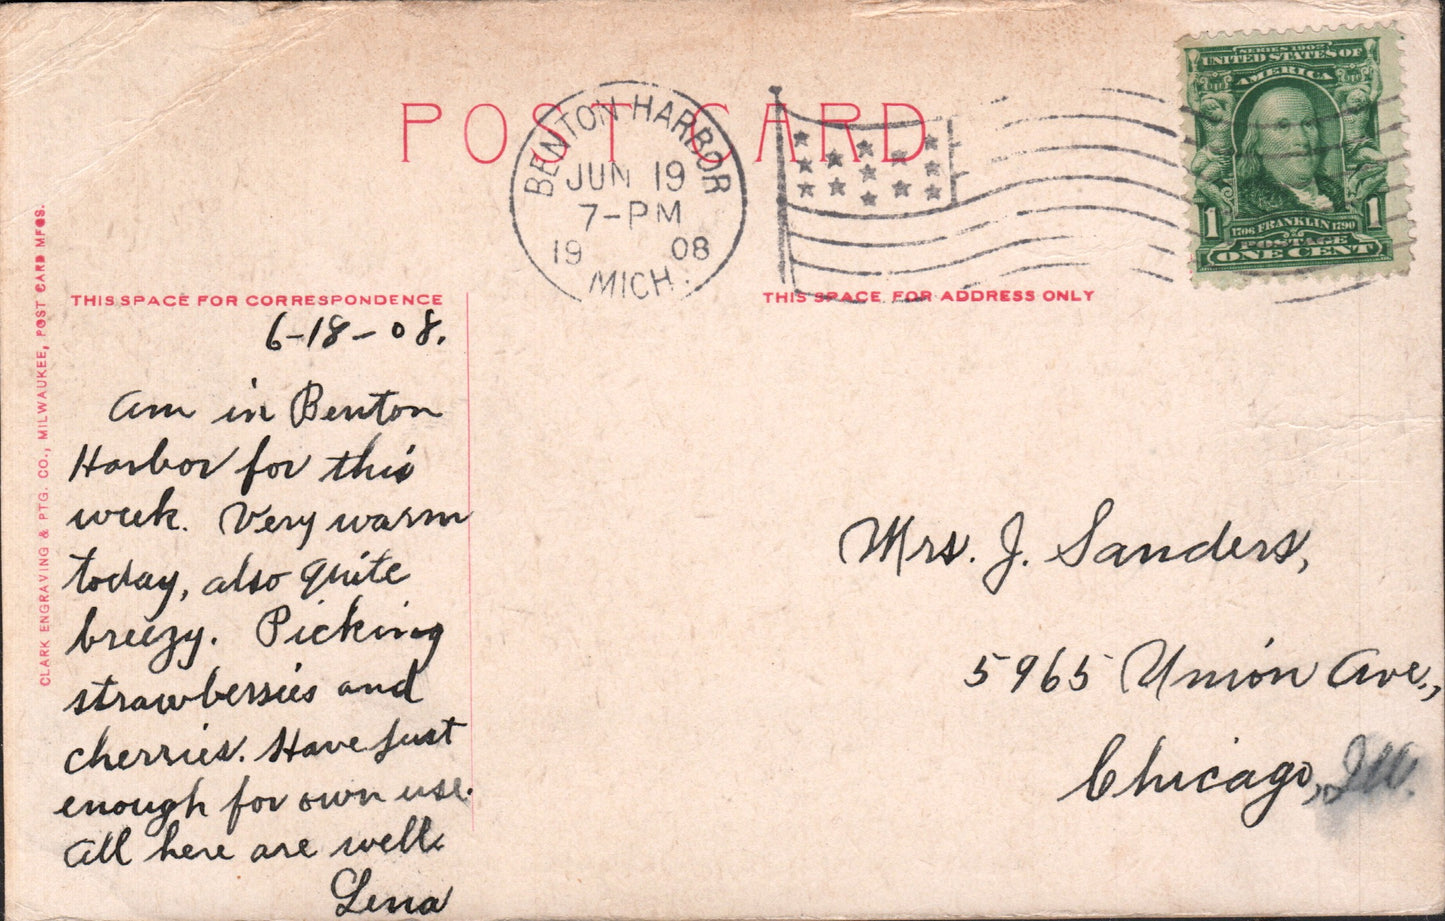 POST CARD
BENTON HARBOR
JUN 19
7-PM
19 08
MICH.
SERIES 1902
UNITED STATES OF
AMERICA
1 1706 FRANKLIN 1790 1
POSTAGE
ONE CENT
CLARK ENGRAVING & PTG. CO., MILWAUKEE, POST CARD MFGS.
THIS SPACE FOR CORRESPONDENCE
THIS SPACE FOR ADDRESS ONLY
6-18-08.
Am in Benton
Harbor for this
week. Very warm
today, also quite
breezy. Picking
strawberries and
cherries. Have just
enough for own use.
All here are well.
Lena
Mrs. J. Sanders,
5965 Union Ave.,
Chicago, Ill.